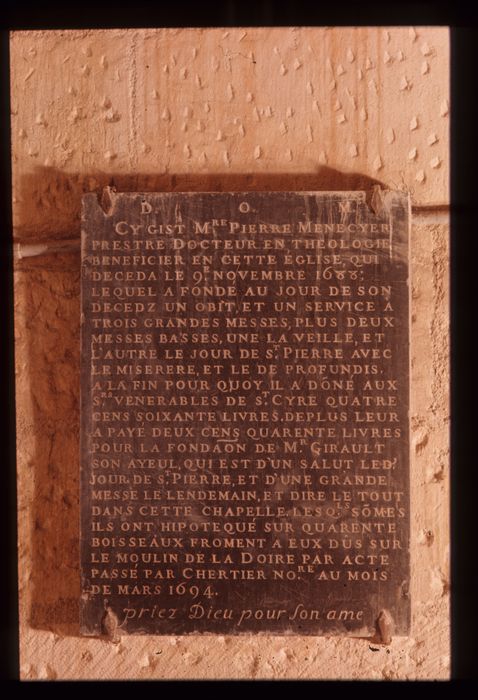 D. O. M
CY GIST M.RE PIERRE MENECYER
PRESTRE DOCTEUR EN THEOLOGIE
BENEFICIER EN CETTE EGLISE, QUI
DECEDA LE 9.E NOVEMBRE 1688;
LEQUEL A FONDÉ AU JOUR DE SON
DECEDZ UN OBIT, ET UN SERVICE A
TROIS GRANDES MESSES, PLUS DEUX
MESSES BASSES, UNE LA VEILLE, ET
L'AUTRE LE JOUR DE S.T PIERRE AVEC
LE MISERERE, ET LE DE PROFUNDIS.
A LA FIN POUR QUOY IL A DŌNÉ AUX
S.RS VENERABLES DE S.T CYRE QUATRE
CENS SOIXANTE LIVRES. DEPLUS LEUR
A PAYÉ DEUX CENS QUARENTE LIVRES
POUR LA FONDAŌN DE M.R GIRAULT
SON AYEUL, QUI EST D'UN SALUT LED.T
JOUR DE S.T PIERRE, ET D'UNE GRANDE
MESSE LE LENDEMAIN, ET DIRE LE TOUT
DANS CETTE CHAPELLE. LESQ.LS SŌMES
ILS ONT HIPOTEQUÉ SUR QUARENTE
BOISSEAUX FROMENT A EUX DÙS SUR
LE MOULIN DE LA DOIRE PAR ACTE
PASSÉ PAR CHERTIER NO.RE AU MOIS
DE MARS 1694.
priez Dieu pour son ame